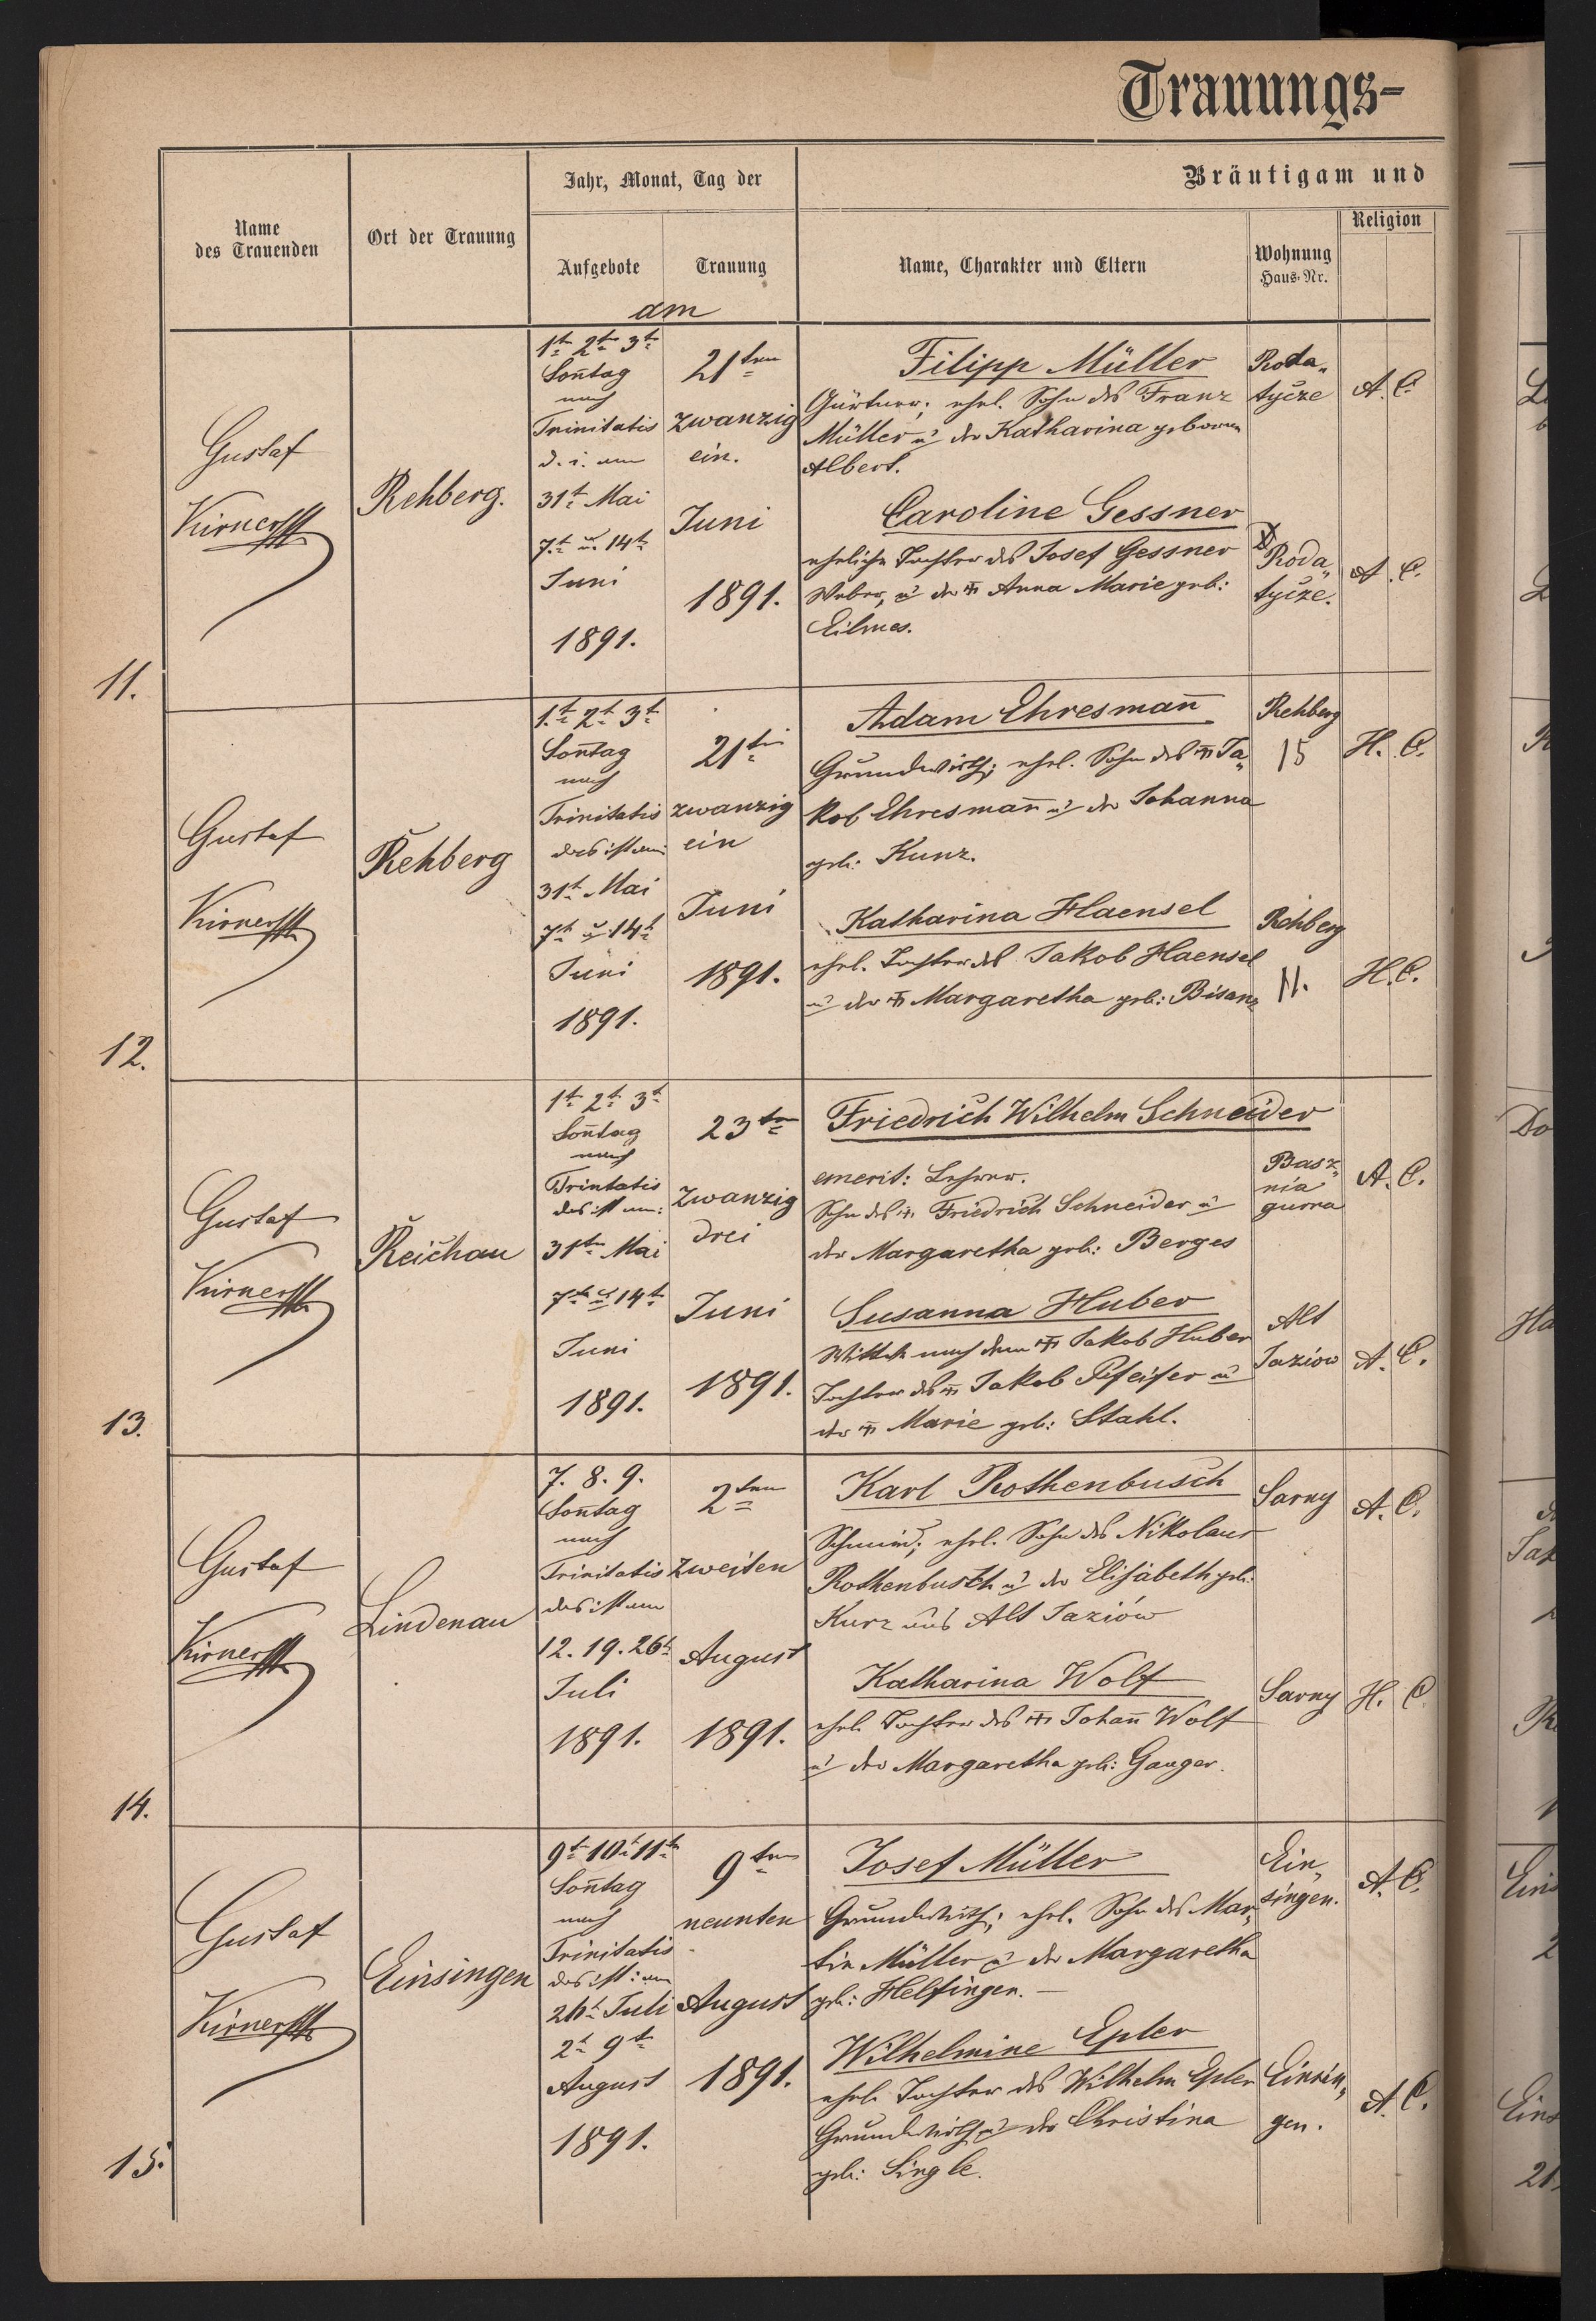 Trauungs-
Name
des Trauenden
Ort der Trauung
Jahr, Monat, Tag der
Aufgebote
Trauung
am
Bräutigam und
Name, Charakter und Eltern
Wohnung
Haus-Nr.
Religion
11.
Gustaf
Rehberg.
1te 2te 3te
Soñtag
nach
Trinitatis
d. i. am
31t Mai
7.t u. 14t
Juni
1891.
21ten
zwanzig
ein.
Juni
1891.
Filipp Müller
Gärtner; ehel. Sohn des Franz
Müller u der Katharina geboren
Albert.
Roda„
tycze
A. C.
Caroline Gessner
eheliche Tochter des Josef Gessner
Weber, u der Anna Marie geb:
Eilmes.
Roda„
tycze.
A. C.
12.
Gustaf
Rehberg
1.t 2t 3t
Soñtag
nach
Trinitatis
das ist am
31t Mai
7t u 14t
Juni
1891.
21te
zwanzig
ein
Juni
1891.
Adam Ehresmañ
Grundwirth; ehel. Sohn des Ja„
kob Ehresmañ u der Johanna
geb: Kunz.
Rehberg
15
H. C.
Katharina Haensel
ehel. Tochter des Jakob Haensel
u der Margaretha geb: Bisanz
Rehberg
11.
H. C.
13.
Gustaf
Reichau
1t 2t 3t
Soñtag
nach
Trintatis
das ist am:
31ten Mai
7t u 14t
Juni
1891.
23ten
zwanzig
drei
Juni
1891.
Friedrich Wilhelm Schneider
emerit: Lehrer.
Sohn des Friedrich Schneider u
der Margaretha geb: Berges
Basz„
nia
gurna
A. C.
Susanna Huber
Wittwe nach dem Jakob Huber
Tochter des Jakob Pfeifer u
der Marie geb: Stahl.
Alt
Jaziow
A. C.
14.
Gustaf
Lindenau
7. 8. 9.
Soñtag
nach
Trinitatis
das ist am
12. 19. 26t
Juli
1891.
2ten
zweiten
August
1891.
Karl Rothenbusch
Schmied; ehel. Sohn des Nikolaus
Rothenbusch u der Elisabeth geb:
Kurz aus Alt Jaziów
Sarny
A. C.
Katharina Wolf
ehel Tochter des Johañ Wolf
u der Margaretha geb: Gauger.
Sarny
H. C.
15.
Gustaf
Einsingen
9t 10t 11t
Soñtag
nach
Trinitatis
das ist: am
26t Juli
2t 9t
August
1891.
9ten
neunten
August
1891.
Josef Müller
Grundwirth; ehel. Sohn des Mar„
tin Müller u der Margaretha
geb: Helfinger. —
Ein„
singen.
A. C.
Wilhelmine Epler
ehel Tochter des Wilhelm Epler
Grundwirth u der Christina
geb: Single.
Einsin„
gen.
A. C.